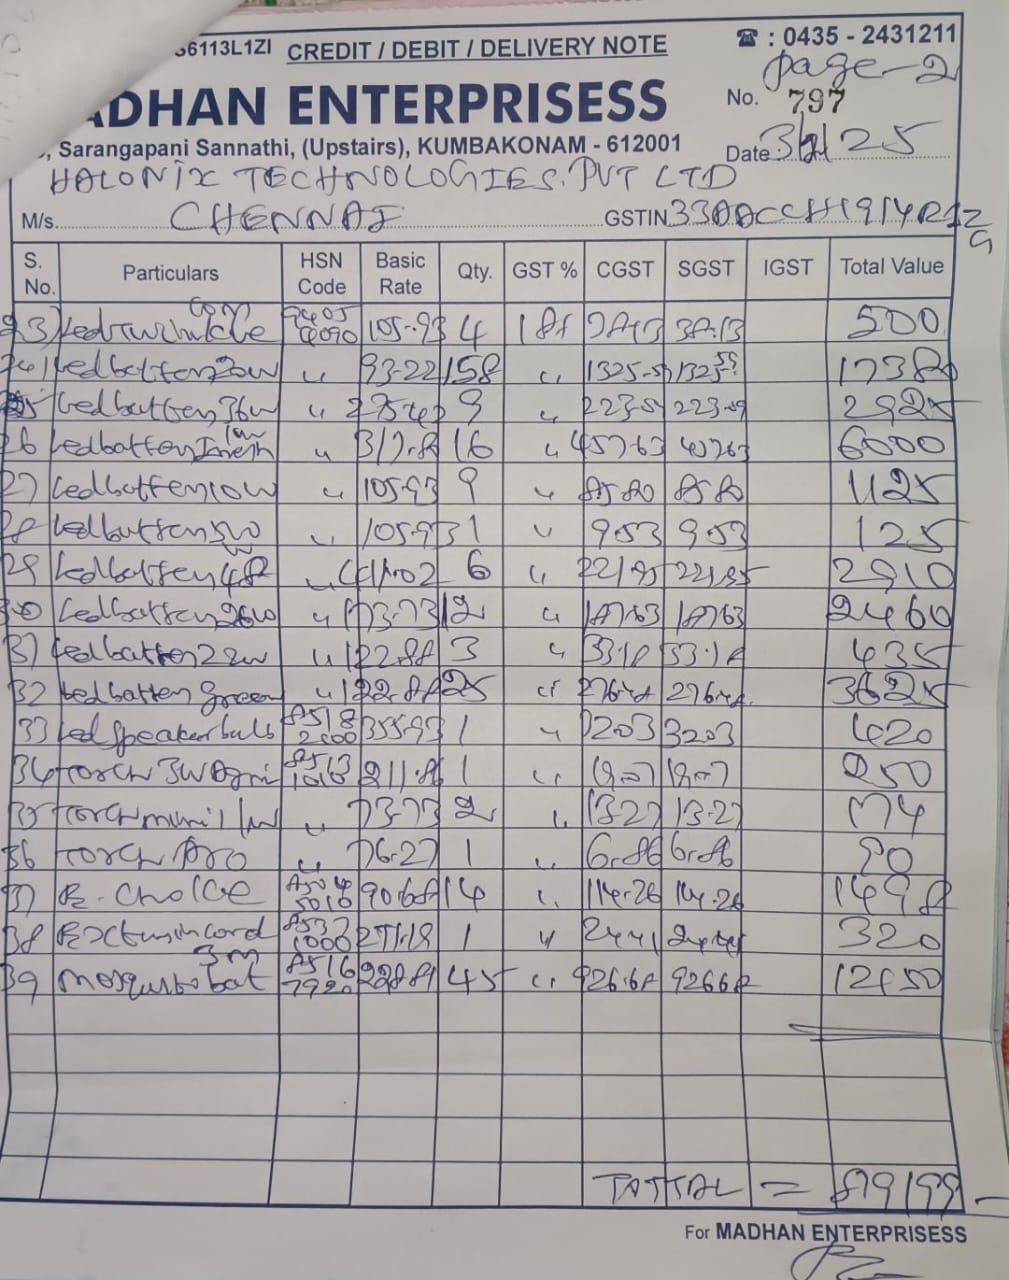 S6113L1ZI CREDIT / DEBIT / DELIVERY NOTE ☎ : 0435 - 2431211
page-2
ADHAN ENTERPRISESS No. 797
, Sarangapani Sannathi, (Upstairs), KUMBAKONAM - 612001 Date 25
HALONIX TECHNOLOGIES. PVT LTD
M/s. CHENNAI GSTIN
S. No. Particulars HSN Code Basic Rate Qty. GST % CGST SGST IGST Total Value
23) 9405 4090 105-93 4 18% 38-13 38-13 500
24) Led batten 20w " 93-22 158 " 1325-59 1325-59 17380
25 Led batten 36w " 275-42 9 " 223-09 223-09 2925
26 Led batten " 317-8 16 " 457-63 457-63 6000
27 Led batten 10w " 105-93 9 " 85-80 85-80 1125
28 Led batten 5w " 105-93 1 " 9-53 9-53 125
29 Led batten 48w " 411-02 6 " 221-95 221-95 2910
30 Led batten 26w " 173-73 12 " 187-63 187-63 2460
31 Led batten 22w " 122-88 3 " 33-18 33-18 435
32 Led batten green " 122-88 25 " 276-48 276-48 3625
33 Led Speaker bulb 8518 2200 355-93 1 " 3203 3203 420
34 Torch 3W Agni 8513 1010 211-86 1 " 19-07 19-07 250
35 Torch mini 1/w " 73-73 2 " 13-27 13-27 174
36 Torch Aro " 76-27 1 " 6-86 6-86 90
37 E-Choke 8504 5010 90-68 14 " 114-26 114-26 1498
38 cord 3m 8537 1000 271-19 1 " 24-41 24-41 320
39 bat 8516 7920 228-81 45 " 926-68 926-68 12150
TATTAL = 89199 -
For MADHAN ENTERPRISESS